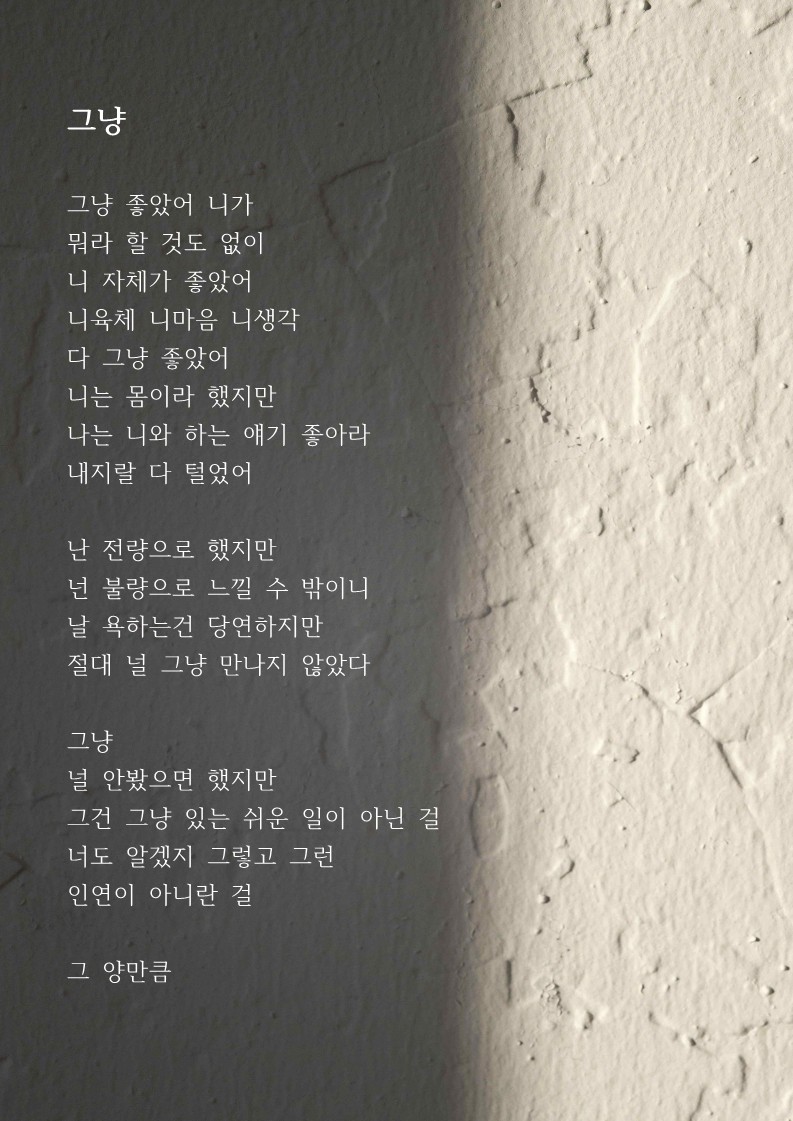 그냥
그냥 좋았어 니가
뭐라 할 것도 없이
니 자체가 좋았어
니육체 니마음 니생각
다 그냥 좋았어
니는 몸이라 했지만
나는 니와 하는 얘기 좋아라
내지랄 다 털었어
난 전량으로 했지만
넌 불량으로 느낄 수 밖이니
날 욕하는건 당연하지만
절대 널 그냥 만나지 않았다
그냥
널 안봤으면 했지만
그건 그냥 있는 쉬운 일이 아닌 걸
너도 알겠지 그렇고 그런
인연이 아니란 걸
그 양만큼